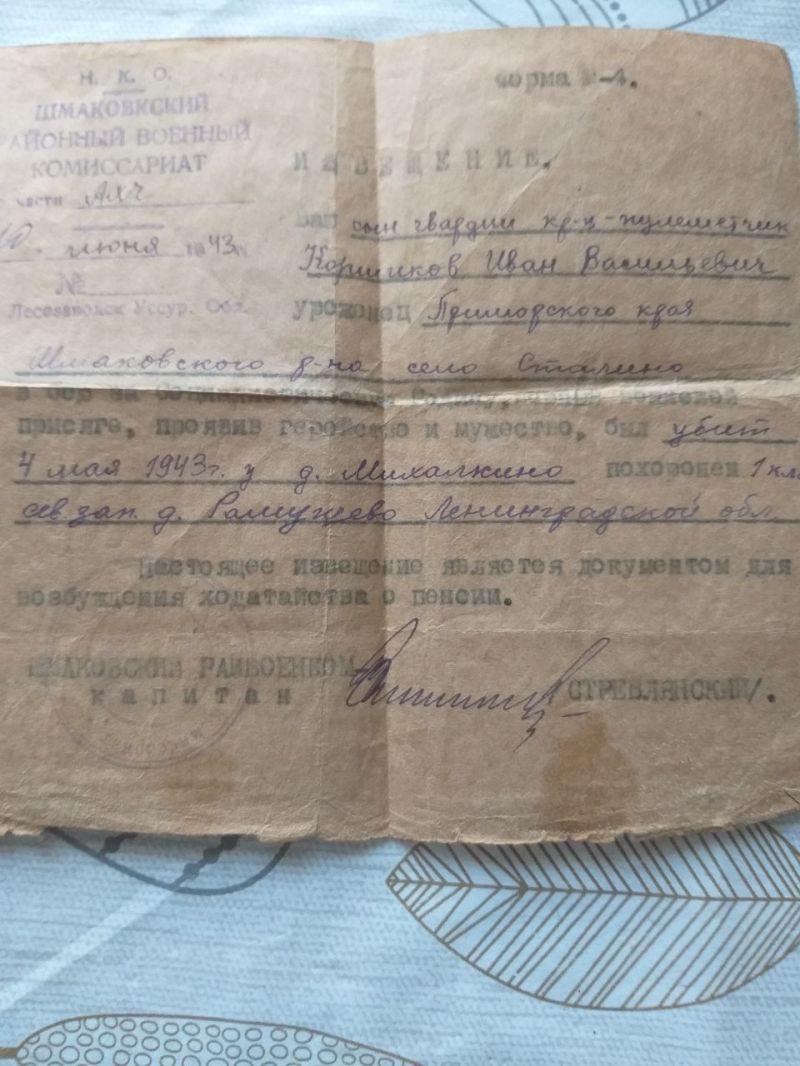 Н. К. О.
ШМАКОВКСКИЙ
РАЙОННЫЙ ВОЕННЫЙ
КОМИССАРИАТ
части
10. июня 1943 г.
№
Лесозаводск Уссур. Обл.
Форма №-4.
ИЗВЕЩЕНИЕ.
Ваш сын гвардии кр-ц-пулеметчик
Иван Васильевич
уроженец Приморского края
Шмаковского р-на село Сталино
в бою за Социалистическую Родину, верный воинской
присяге, проявив геройство и мужество, был убит
4 мая 1943г. у д. Михалкино похоронен 1 км
сев зап. д. Рамушево Ленинградской обл.
Настоящее извещение является документом для
возбуждения ходатайства о пенсии.
ШМАКОВСКИЙ РАЙВОЕНКОМ
капитан СТРЕВЛЯНСКИЙ/.